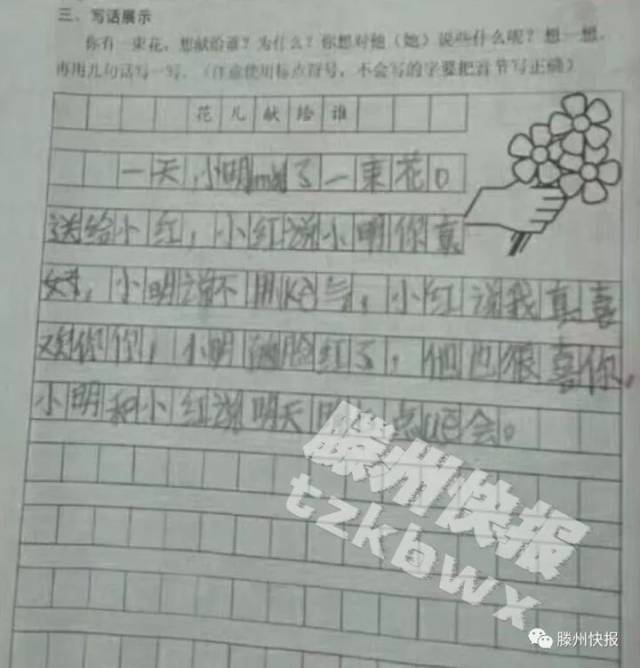 三、写话展示
你有一束花，想献给谁？为什么？你想对他（她）说些什么呢？想一想，
再用几句话写一写。（注意使用标点符号，不会写的字要把音节写正确）
花儿献给谁
一天，小明mai了一束花。
送给小红，小红说小明你真
好，小明说不用kè气，小红说我真喜
欢你，小明 脸红了，他也很喜你。
小明和小红说明天 点 会。
滕州快报
tzkbwx
滕州快报